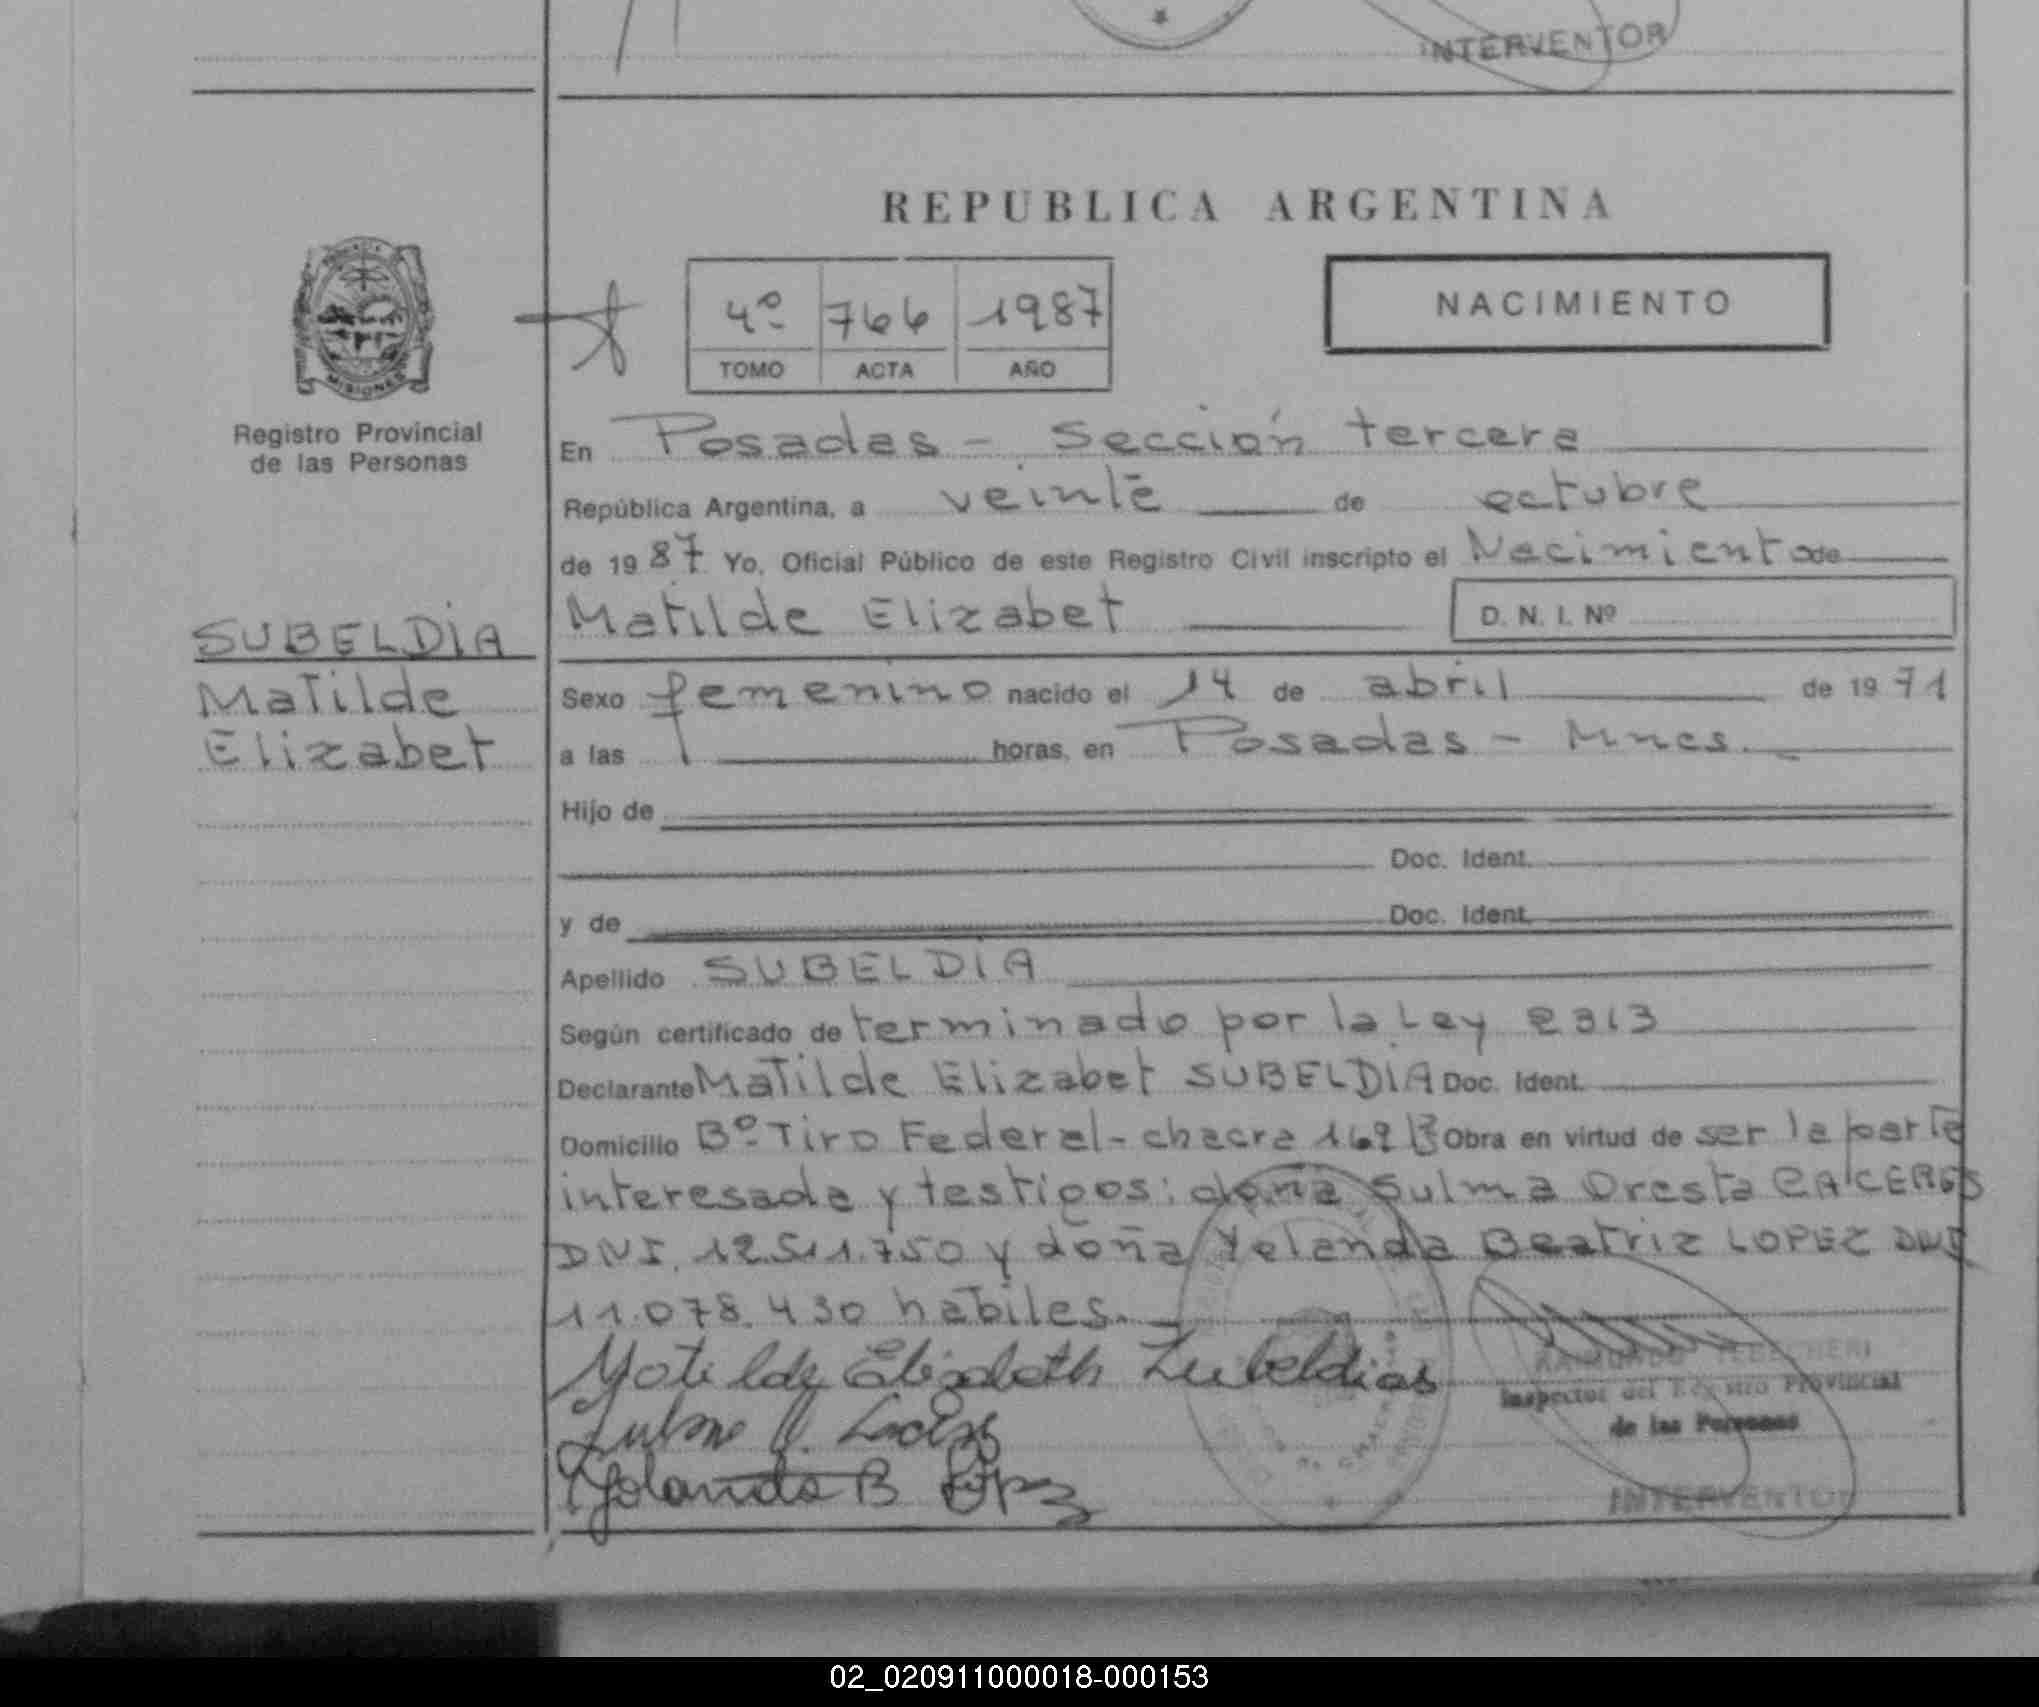 INTERVENTOR
REPUBLICA ARGENTINA
4º 766 1987
TOMO ACTA AÑO
NACIMIENTO
MISIONES
Registro Provincial
de las Personas
En Posadas - Sección tercera
República Argentina, a veinte de octubre
de 1987 Yo, Oficial Público de este Registro Civil inscripto el Nacimiento de
Matilde Elizabet D. N. I. Nº
SUBELDIA
Matilde
Elizabet
Sexo femenino nacido el 14 de abril de 1971
a las horas, en Posadas - Mnes.
Hijo de
Doc. Ident.
y de Doc. Ident.
Apellido SUBELDIA
Según certificado de terminado por la Ley 2313
Declarante Matilde Elizabet SUBELDIA Doc. Ident.
Domicilio Bº Tiro Federal - chacra 169 Obra en virtud de ser la parte
interesada y testigos: doña Sulma Oresta CACERES
DNI. 12.511.750 y doña Yolanda Beatriz LOPEZ DNI
11.078.430 habiles.
Matilde Elizabeth Zubeldias
Yolanda B López
Inspector del Registro Provincial
de las Personas
INTERVENTOR
02_020911000018-000153